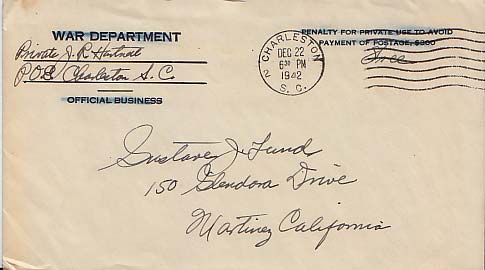 WAR DEPARTMENT
Private J. R. Hartnett
P.O.E. Charleston S. C.
OFFICIAL BUSINESS
CHARLESTON
2
DEC 22
6 30 PM
1942
S. C.
PENALTY FOR PRIVATE USE TO AVOID
PAYMENT OF POSTAGE, $300
Free
Gustave J. Lund
150 Glendora Drive
Martinez California